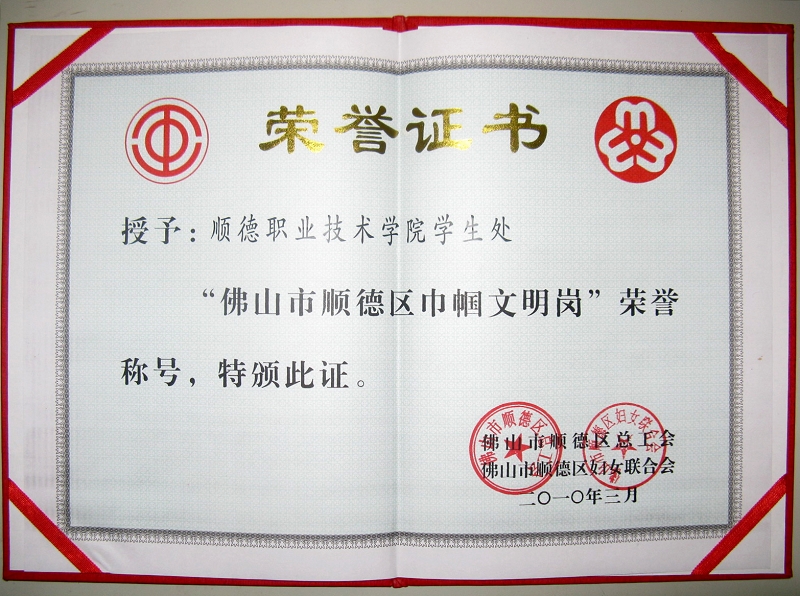 荣誉证书
授予：顺德职业技术学院学生处
“佛山市顺德区巾帼文明岗”荣誉
称号，特颁此证。
佛山市顺德区总工会
佛山市顺德区妇女联合会
二〇一〇年三月
佛山市顺德区总工会
佛山市顺德区妇女联合会